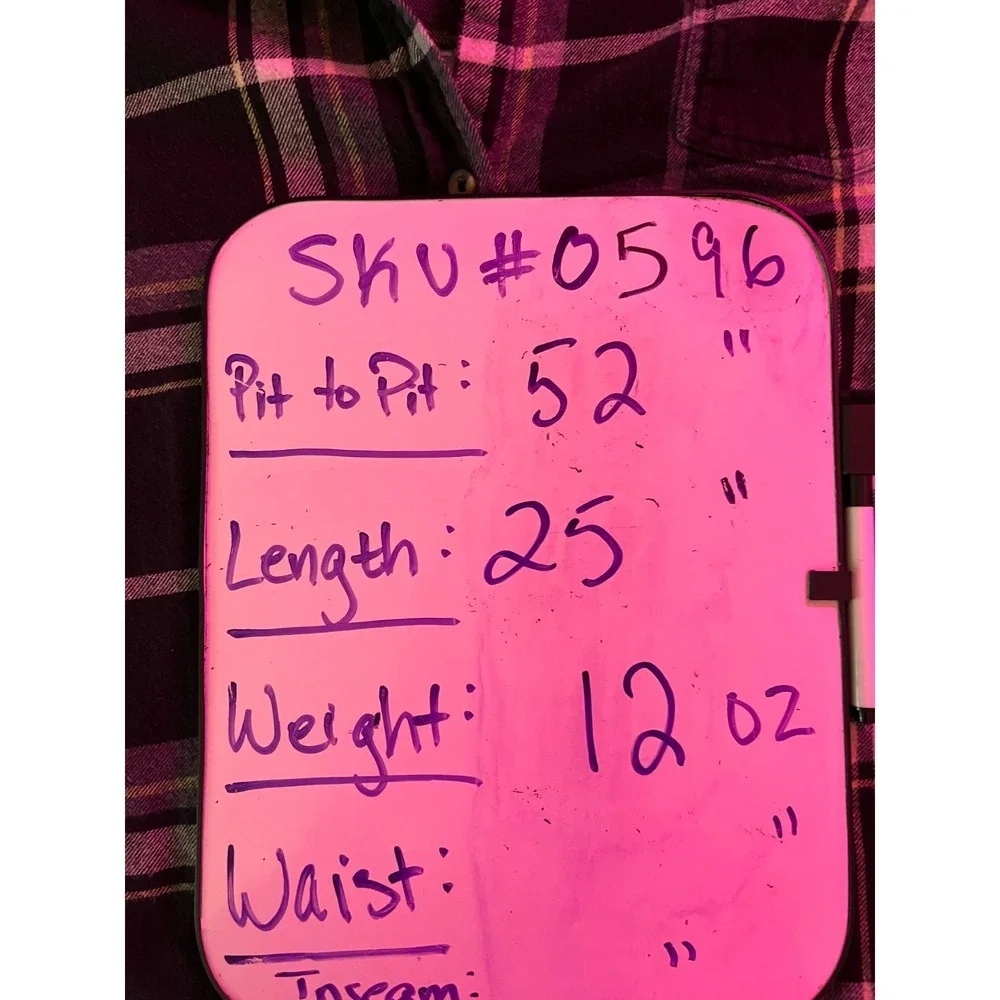 SKU #0596
Pit to Pit: 52 "
Length: 25 "
Weight: 12 oz
Waist: "
Inseam: "